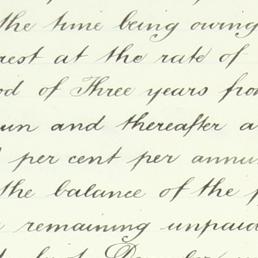 the time being owing
rest at the rate of
od of Three years from
un and thereafter a
per cent per annu
the balance of the p
remaining unpaid